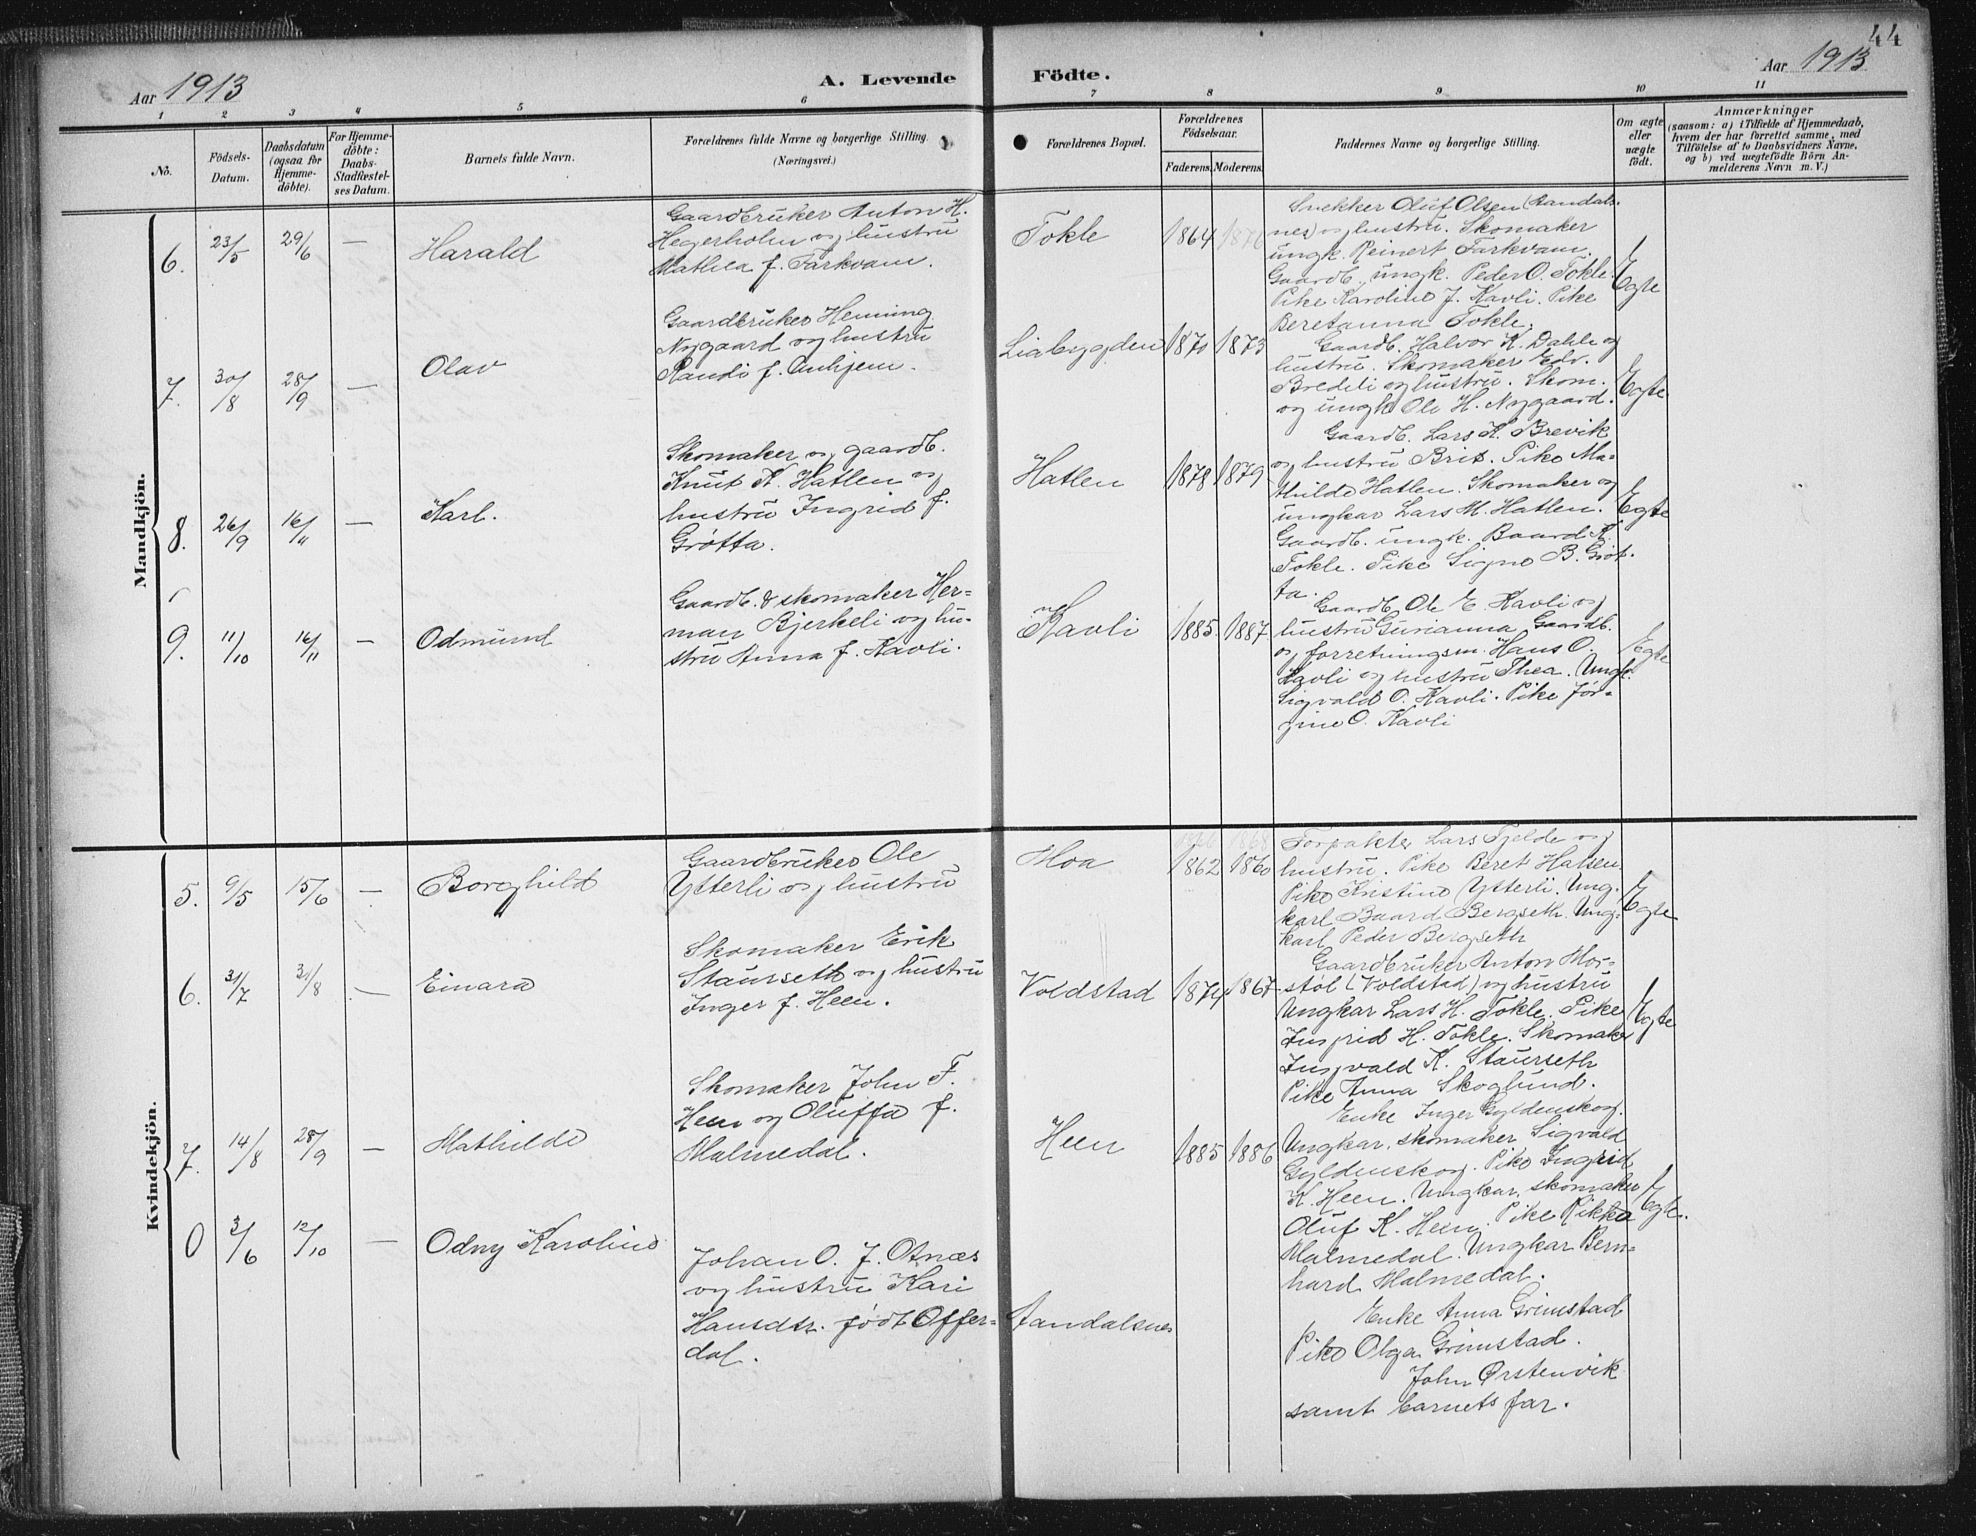 44
Aar 1913
A. Levende Födte.
Aar 1913
1 2 3 4 5 6 7 8 9 10 11
No.
Födsels-
Datum.
Daabsdatum
(ogsaa for
Hjemme-
döbte).
For Hjemme-
döbte:
Daabs-
Stadfæstel-
ses Datum.
Barnets fulde Navn.
Forældrenes fulde Navne og borgerlige Stilling.
(Næringsvei.)
Forældrenes Bopæl.
Forældrenes
Födselsaar.
Faderens. Moderens.
Faddernes Navne og borgerlige Stilling.
Om ægte
eller
uægte
födt.
Anmærkninger
(saasom: a) i Tilfælde af Hjemmedaab,
hvem der har forrettet samme, med
Tilföielse af to Daabsvidners Navne,
og b) ved uegtefödte Börn An-
melderens Navn m. V.)
Mandkjön.
6. 23/5 29/6 — Harald
Gaardbruker Anton H.
Hegerholm og hustru
Mathea f. Farkvam.
Tokle 1864 1876
Snekker Oluf Olsen (Aandals-
nes) og hustru. Skomaker
ungk. Reinert Farkvam.
Gaardb. ungk. Peder O. Tokle.
Pike Karoline J. Kavli. Pike
Beretanna Tokle.
Egte
7. 30/8 28/9 — Olav
Gaardbruker Henning
Nygaard og hustru
Randi f. Unhjem.
Liabygden 1870 1873
Gaardb. Halvor K. Dahle og
hustru. Skomaker Edv.
Bredeli og hustru. Skom.
og ungk Ole H. Nygaard.
Egte
8. 26/9 16/11 — Karl.
Skomaker og gaardb.
Knut K. Hatlen og
hustru Ingrid f.
Grøtta.
Hatlen 1878 1879
Gaardb. Lars K. Brevik
og hustru Brit. Pike Ma-
thilde Hatlen. Skomaker og
ungkar Lars M. Hatlen.
Gaardb. ungk. Baard K.
Tokle. Pike Signe B. Grøt-
ta.
Egte
9. 11/10 16/11 — Odmund
Gaardb. & skomaker Her-
man Bjerkeli og hu-
stru Anna f. Kavli.
Kavli 1885. 1887.
Gaardb. Ole E. Kavli og
hustru Gurianna. Gaardb.
og forretningsm. Hans O.
Kavli og hustru Thea. Ungk.
Sigvald O. Kavli. Pike Jør-
gine O. Kavli
Egte
Kvindekjön.
5. 9/5 15/6 — Borghild
Gaardbruker Ole
Ytterli og hustru
Moa 1862 1860
Forpakter Lars Fjelde og
hustru. Pike Beret Halsen.
Pike Kristine Ytterli. Ung-
karl Baard Bergseth. Ung-
karl Peder Bergseth
Egte
6. 31/7 31/8 — Einara
Skomaker Erik
Staurseth og hustru
Inger f. Heen.
Voldstad 1874 1867
Gaardbruker Anton Mor-
støl (Voldstad) og hustru
Ungkar Lars H. Tokle. Pike
Ingrid H. Tokle. Skomaker
Ingvald K. Staurseth
Pike Anna Skoglund.
Egte
7. 14/8 28/9 — Mathilde
Skomaker John F.
Heen og Oluffa f.
Malmedal.
Heen 1885 1886
Enke Inger Gyldenskog.
Ungkar, skomaker Sigvald
Gyldenskog. Pike Ingrid
K. Heen. Ungkar, skomaker
Oluf K. Heen. Pike Rikka
Malmedal. Ungkar Bern-
hard Malmedal.
Egte.
0 3/6 12/10 — Odny Karoline
Johan O. J. Otnæs
og hustru Kari
Hansdtr. født Offer-
dal.
Aandalsnes
Enke Anna Grimstad
Pike Olga Grimstad.
John Ørstenvik
samt barnets far.